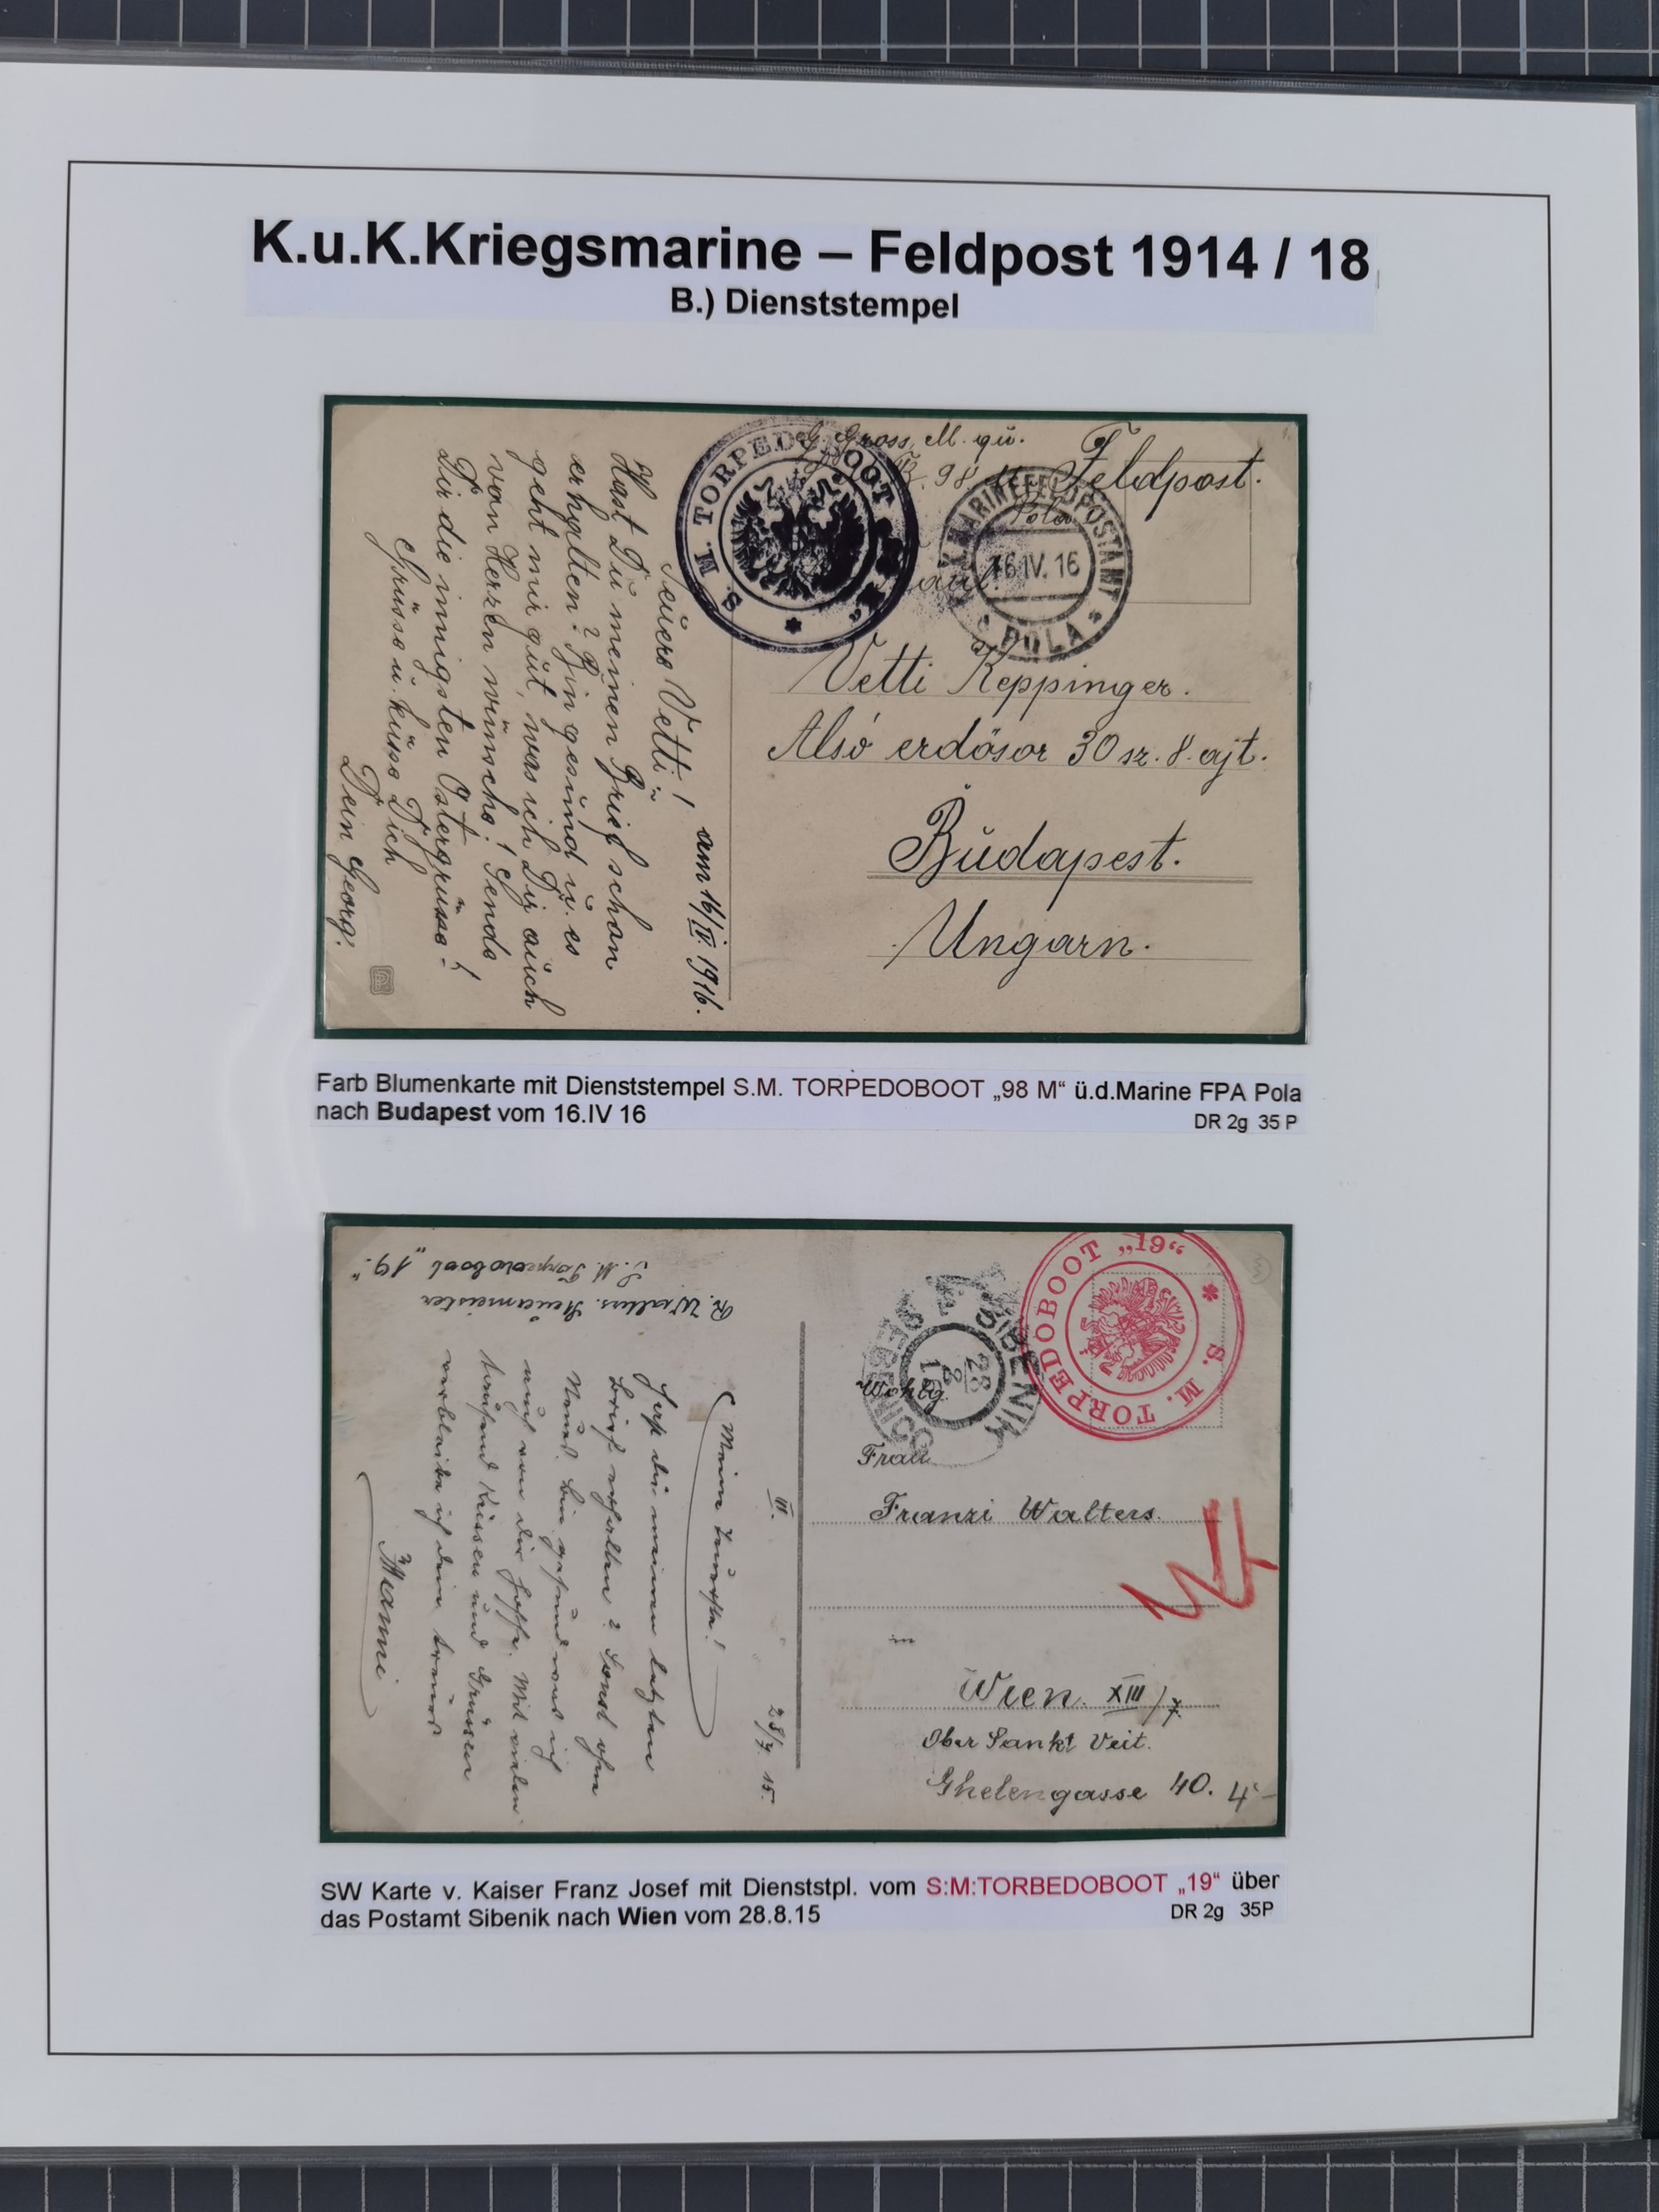 K.u.K.Kriegsmarine – Feldpost 1914 / 18
B.) Dienststempel
G. Gross, M. qu.
98 M
Pola
Feldpost.
S. M. TORPEDOBOOT
K.u.K. MARINEFELDPOSTAMT
16 IV. 16
POLA
Vetti Keppinger.
Alsó erdősor 30 sz. 8. ajt.
Budapest.
Ungarn.
am 16/IV. 1916.
Teuere Vetti!
Hast Du meinen Brief schon
erhalten? Bin gesund u. es
geht mir gut, was ich Dir auch
von Herzen wünsche! Sende
Dir die innigsten Ostergrüsse!
Grüsse u. küsse Dich
Dein Georg.
Farb Blumenkarte mit Dienststempel S.M. TORPEDOBOOT „98 M“ ü.d.Marine FPA Pola
nach Budapest vom 16.IV 16
DR 2g 35 P
R. Walters. Steuermeister
S. M. Torpedoboot „19.“
S. M. TORPEDOBOOT „19“
SIBENIK
SEBENICO
28
8
15
Wohlg.
Frau
Franzi Walters.
in
Wien. XIII/7
Ober Sankt Veit.
Ghelengasse 40.
4-
III.
28/7. 15.
Meine Teuerste!
Hast du meinen letzten
Brief erhalten? Sonst ohne
Neues, bin gesund was ich
auch von dir hoffe. Mit vielen
tausend Küssen und Grüssen
verbleibe ich dein treuer
SW Karte v. Kaiser Franz Josef mit Dienststpl. vom S:M:TORBEDOBOOT „19“ über
das Postamt Sibenik nach Wien vom 28.8.15
DR 2g 35P